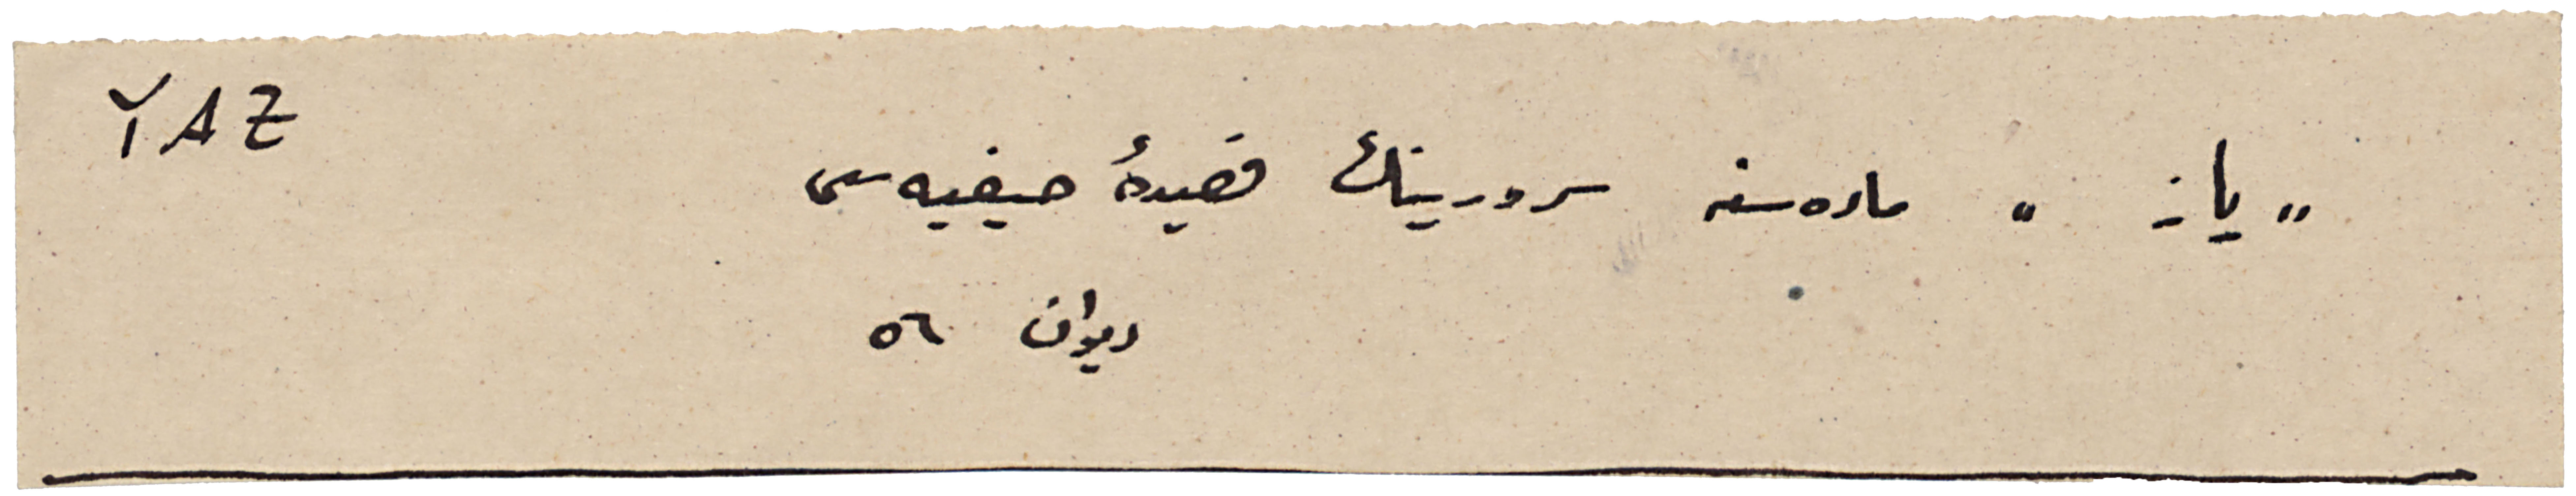 YAZ
„ یاز „ ماده‌سنه سرورینك قصیدهٔ صیفیه‌سی
دیوان ٥٦